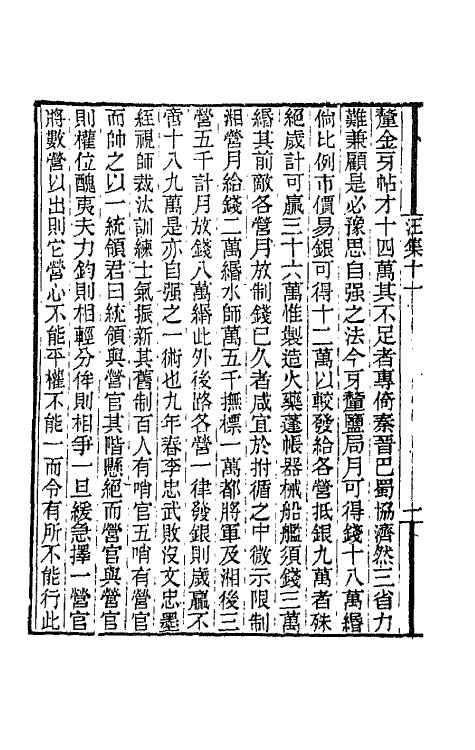 釐金牙帖才十四萬其不足者專倚秦晉巴蜀協濟然三省力
難兼顧是必豫思自强之法今牙釐鹽局月可得錢十八萬緡
倘比例市價易銀可得十二萬以較發給各營抵銀九萬者殊
絕歲計可贏三十六萬惟製造火藥蓬帳器械船艦須錢三萬
緡其前敵各營月放制錢已久者咸宜於拊循之中微示限制
湘營月給錢二萬緡水師萬五千撫標一萬都將軍及湘後三
營五千計月放錢八萬緡此外後路各營一律發銀則歲贏不
啻十八九萬是亦自强之一術也九年春李忠武敗沒文忠墨
絰視師裁汰訓練士氣振新其舊制百人有哨官五哨有營官
而帥之以一統領君曰統領與營官其階懸絕而營官與營官
則權位醜夷夫力鈞則相輕分侔則相爭一旦緩急擇一營官
將數營以出則它營心不能平權不能一而令有所不能行此
汪集十一
一